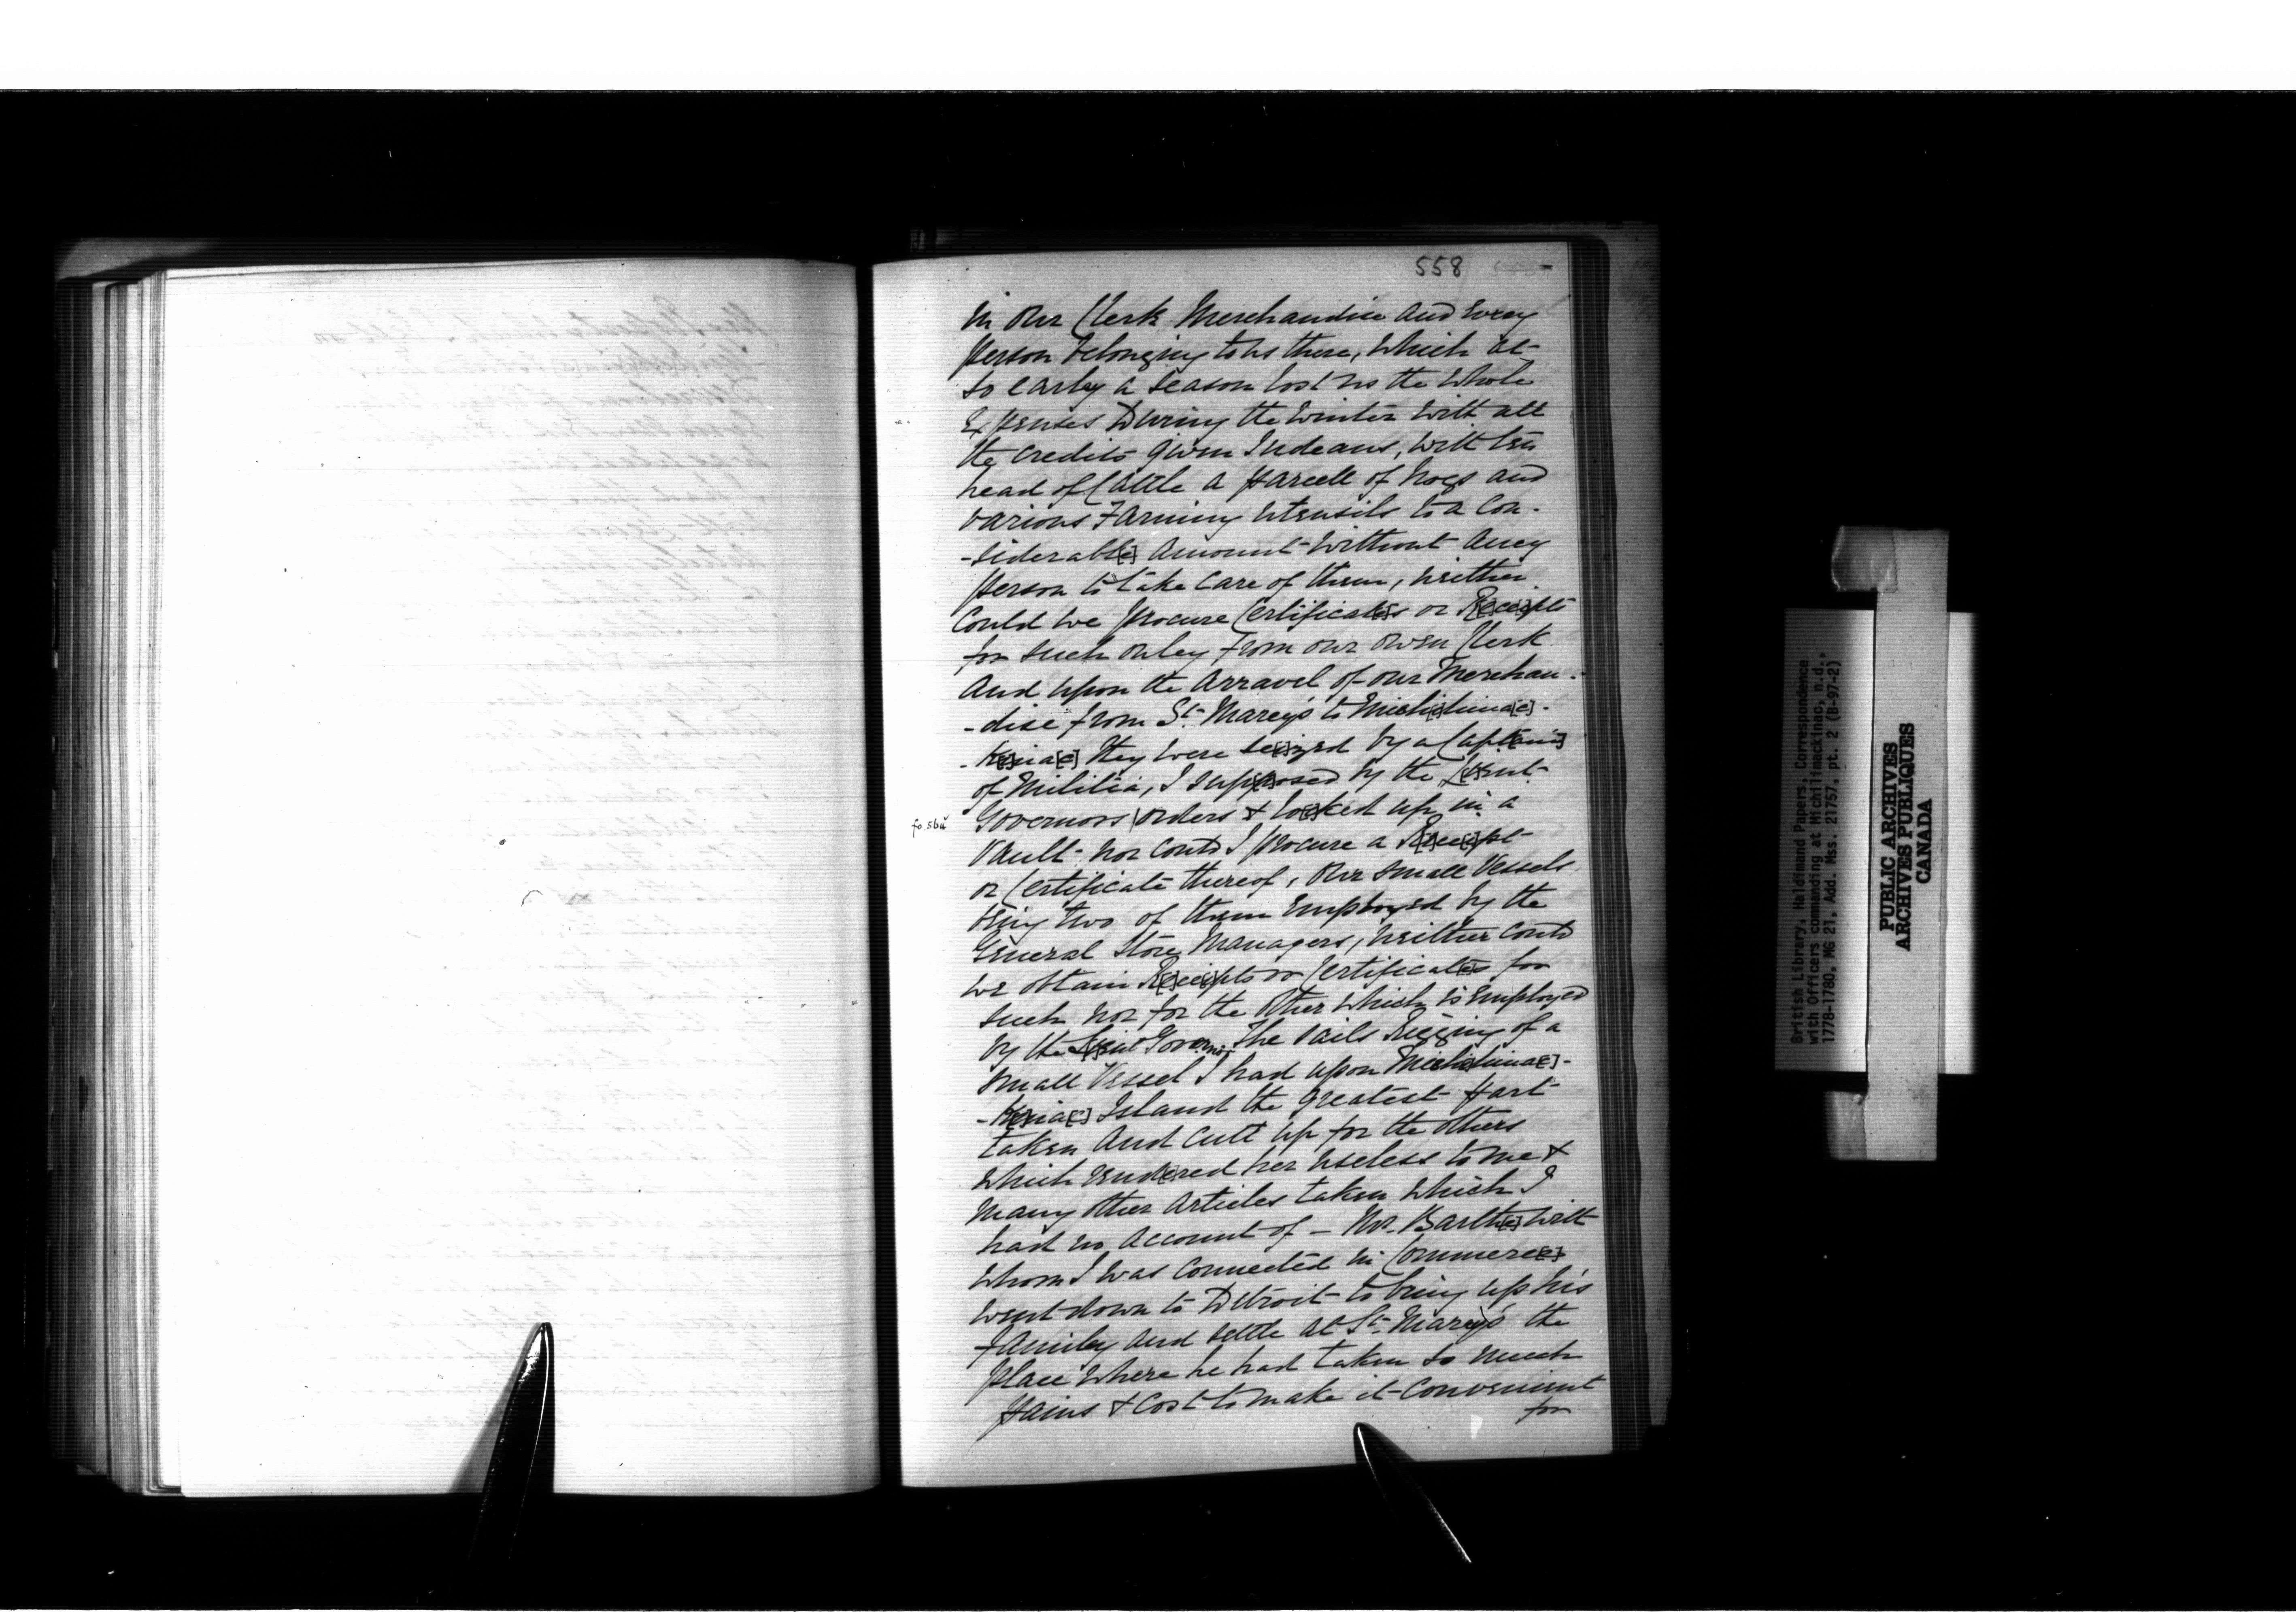 558
in our Clerk Merchandise and Every
person belonging to us there, which at
so early a season lost us the whole
Expenses During the winter with all
the credits given Indeans, with ten
head of Cattle a parcell of hogs and
various Farming utensils to a Con-
-siderabl[e] amount without aney
person to take care of them, neither
Could we procure Certificat[e]s or R[e]c[ei]pts
for such onley From our own Clerk
And upon the Arravel of our Merchan-
-dise from St. Marey's to Michilima[c]-
they were se[i]zed by a Captain
of Militia, I supposed by the Lieut.
fo. 56v
Governors orders & lo[c]ked up in a
Vault nor could I procure a
or Certificate thereof, Our small Vessels
being two of them Employed by the
General Store Managers, neither could
we obtain or Certificates for
such nor for the other which is Employed
by the Lieut Governor, The sails Rigging of a
small Vessel I had upon
Island the greatest part
taken and cutt up for the others
which rend[e]red her useless to me &
many other articles taken which I
had no account of — Mr. Barth[e] with
whom I was connected in Commerc[e]
went down to Detroit to bring up his
Familey and settle at St. Marey's the
place where he had taken so much
pains & cost to make it convenient
for
British Library, Haldimand Papers, Correspondence
with Officers commanding at Michilimackinac, n.d.,
1778-1780, MG 21, Add. Mss. 21757, pt. 2 (B-97-2)
PUBLIC ARCHIVES
ARCHIVES PUBLIQUES
CANADA